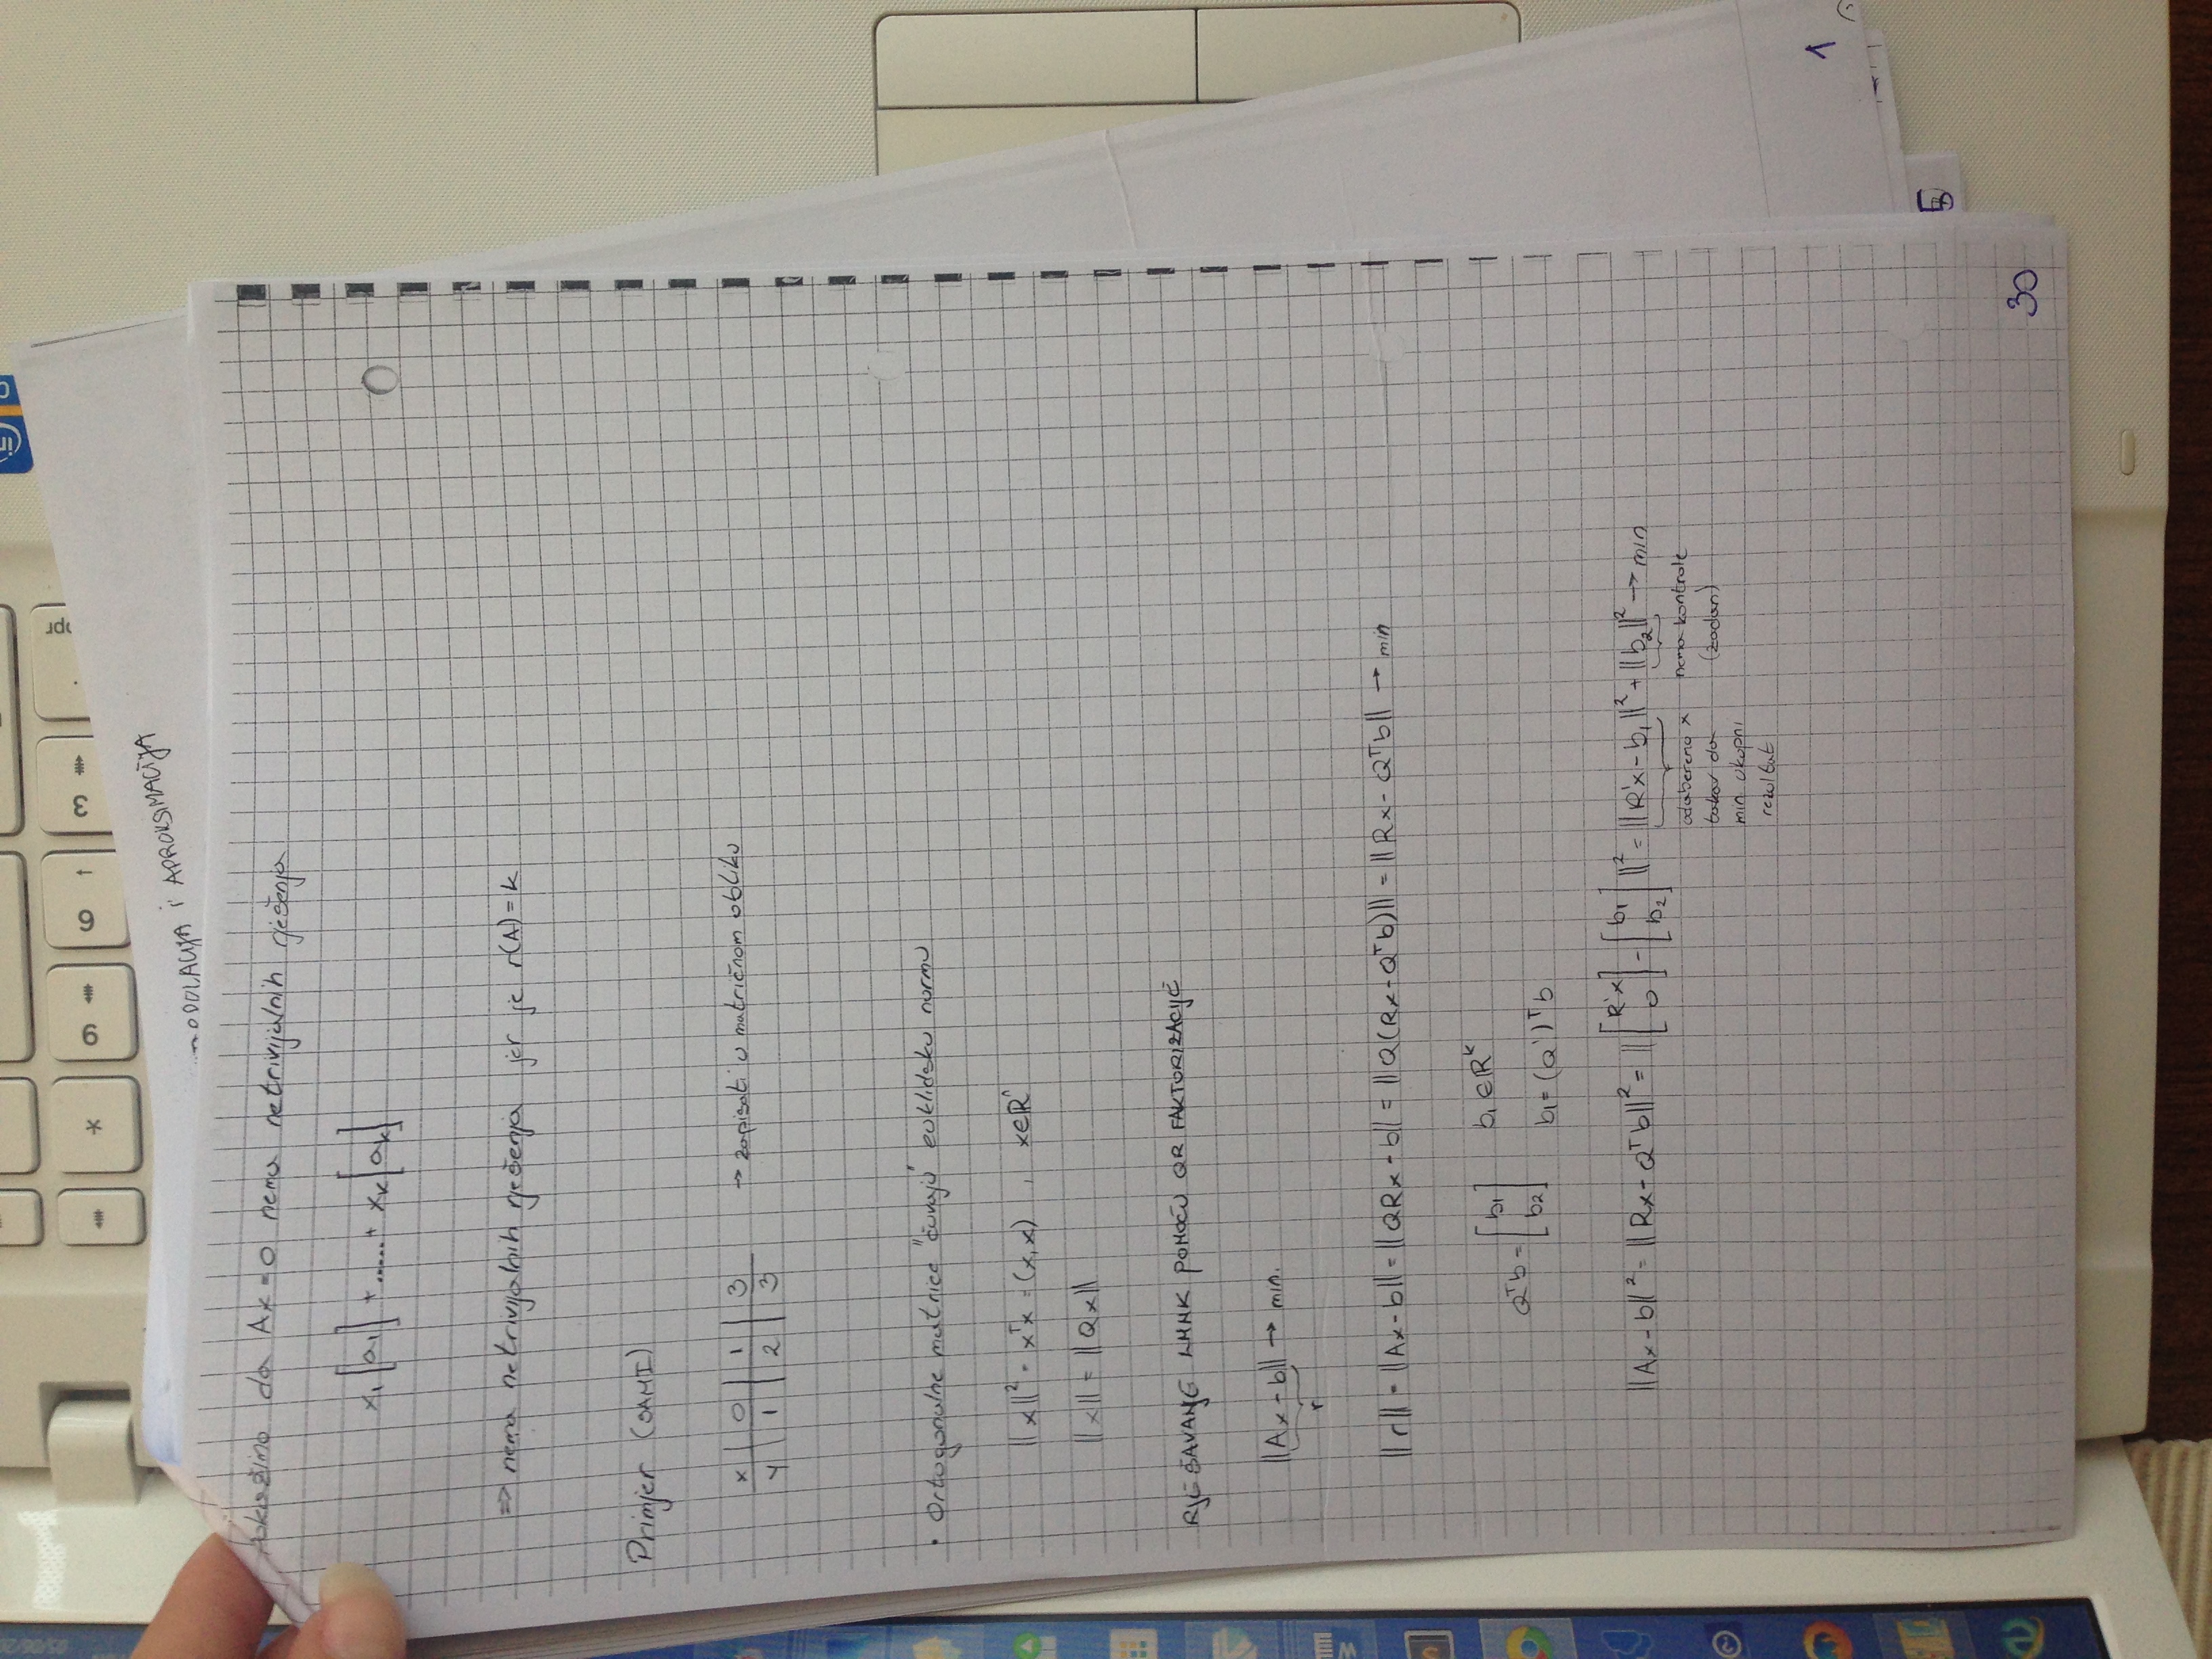 9
6
3
*
INTERPOLACIJA i APROKSIMACIJA
Pokažimo da Ax=0 nema netrivijalnih rješenja
x₁[a₁] + ...... + xₖ[aₖ]
⇒ nema netrivijalnih rješenja jer je r(A)=k
Primjer (SAMI)
x | 0 | 1 | 3 → zapisati u matričnom obliku
y | 1 | 2 | 3
• Ortogonalne matrice "čuvaju" euklidsku normu
||x||² = xᵀx = (x,x) , x∈ℝⁿ
||x|| = ||Qx||
RJEŠAVANJE LMNK POMOĆU QR FAKTORIZACIJE
||Ax-b|| → min.
r
||r|| = ||Ax-b|| = ||QRx-b|| = ||Q(Rx-Qᵀb)|| = ||Rx-Qᵀb|| → min
Qᵀb = [b₁ b₂] b₁∈ℝᵏ
b₁=(Q')ᵀb
||Ax-b||² = ||Rx-Qᵀb||² = ||[R'x 0]-[b₁ b₂]||² = ||R'x-b₁||² + ||b₂||² → min
odaberemo x nema kontrole
takav da (zadan)
min ukupni
rezultat
1
5
30